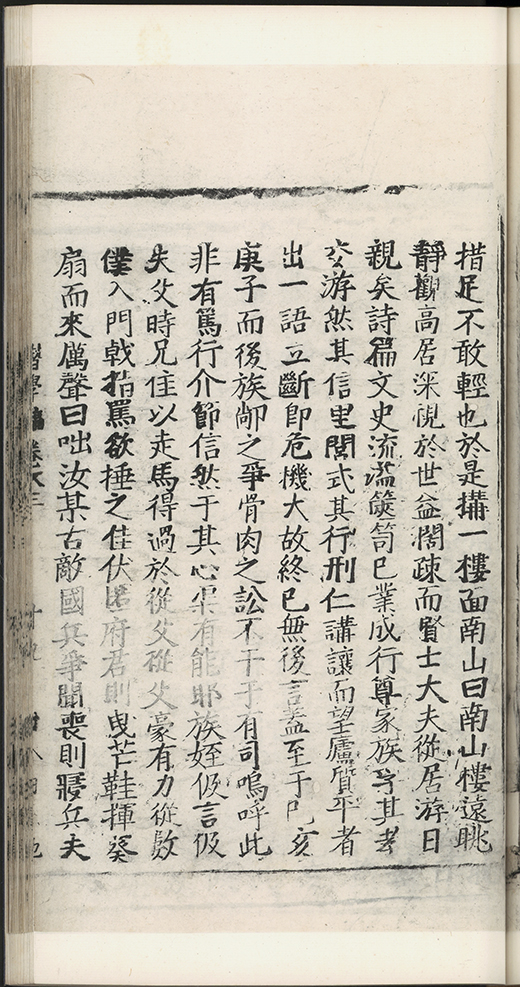 措足不敢輕也於是搆一樓面南山曰南山樓遠眺
靜觀高居深視於世益闊疎而賢士大夫從居游日
親矣詩篇文史流滥篋笥已業成行尊家族孚其孝
交游然其信里閈式其行刑仁講讓而望廬質平者
出一語立斷即危機大故終已無後言蓋至于門亥
庚子而後族鄉之爭骨肉之訟不干于有司嗚呼此
非有篤行介節信然于其心渠有能耶族姪伋言伋
失父時兄住以走馬得過於從父從父豪有力從數
僕入門戟指罵欲捶之住伏匿府君則曳芒鞋揮葵
扇而來厲聲曰咄汝某古敵國兵爭聞喪則寢兵夫